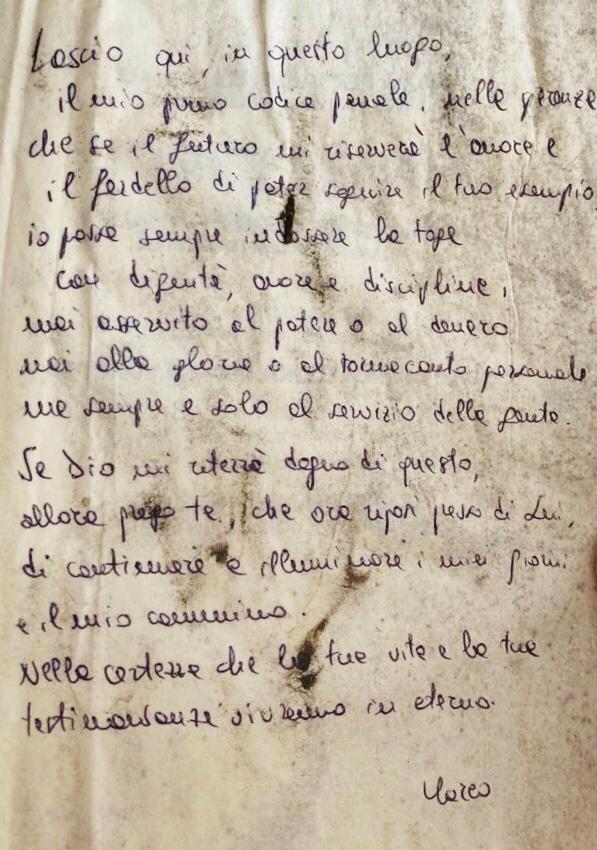 Lascio qui, in questo luogo,
il mio primo codice penale, nella speranza
che se il futuro mi riserverà l'onore e
il fardello di poter seguire il tuo esempio,
io possa sempre indossare la toga
con dignità, onore e disciplina,
mai asservito al potere o al denaro
mai alla gloria o al tornaconto personale
ma sempre e solo al servizio della gente.
Se Dio mi riterrà degno di questo,
allora prego te, che ora riposi presso di Lui,
di continuare a illuminare i miei giorni
e il mio cammino.
Nella certezza che la tua vita e la tua
testimonianza vivranno in eterno.
Marco